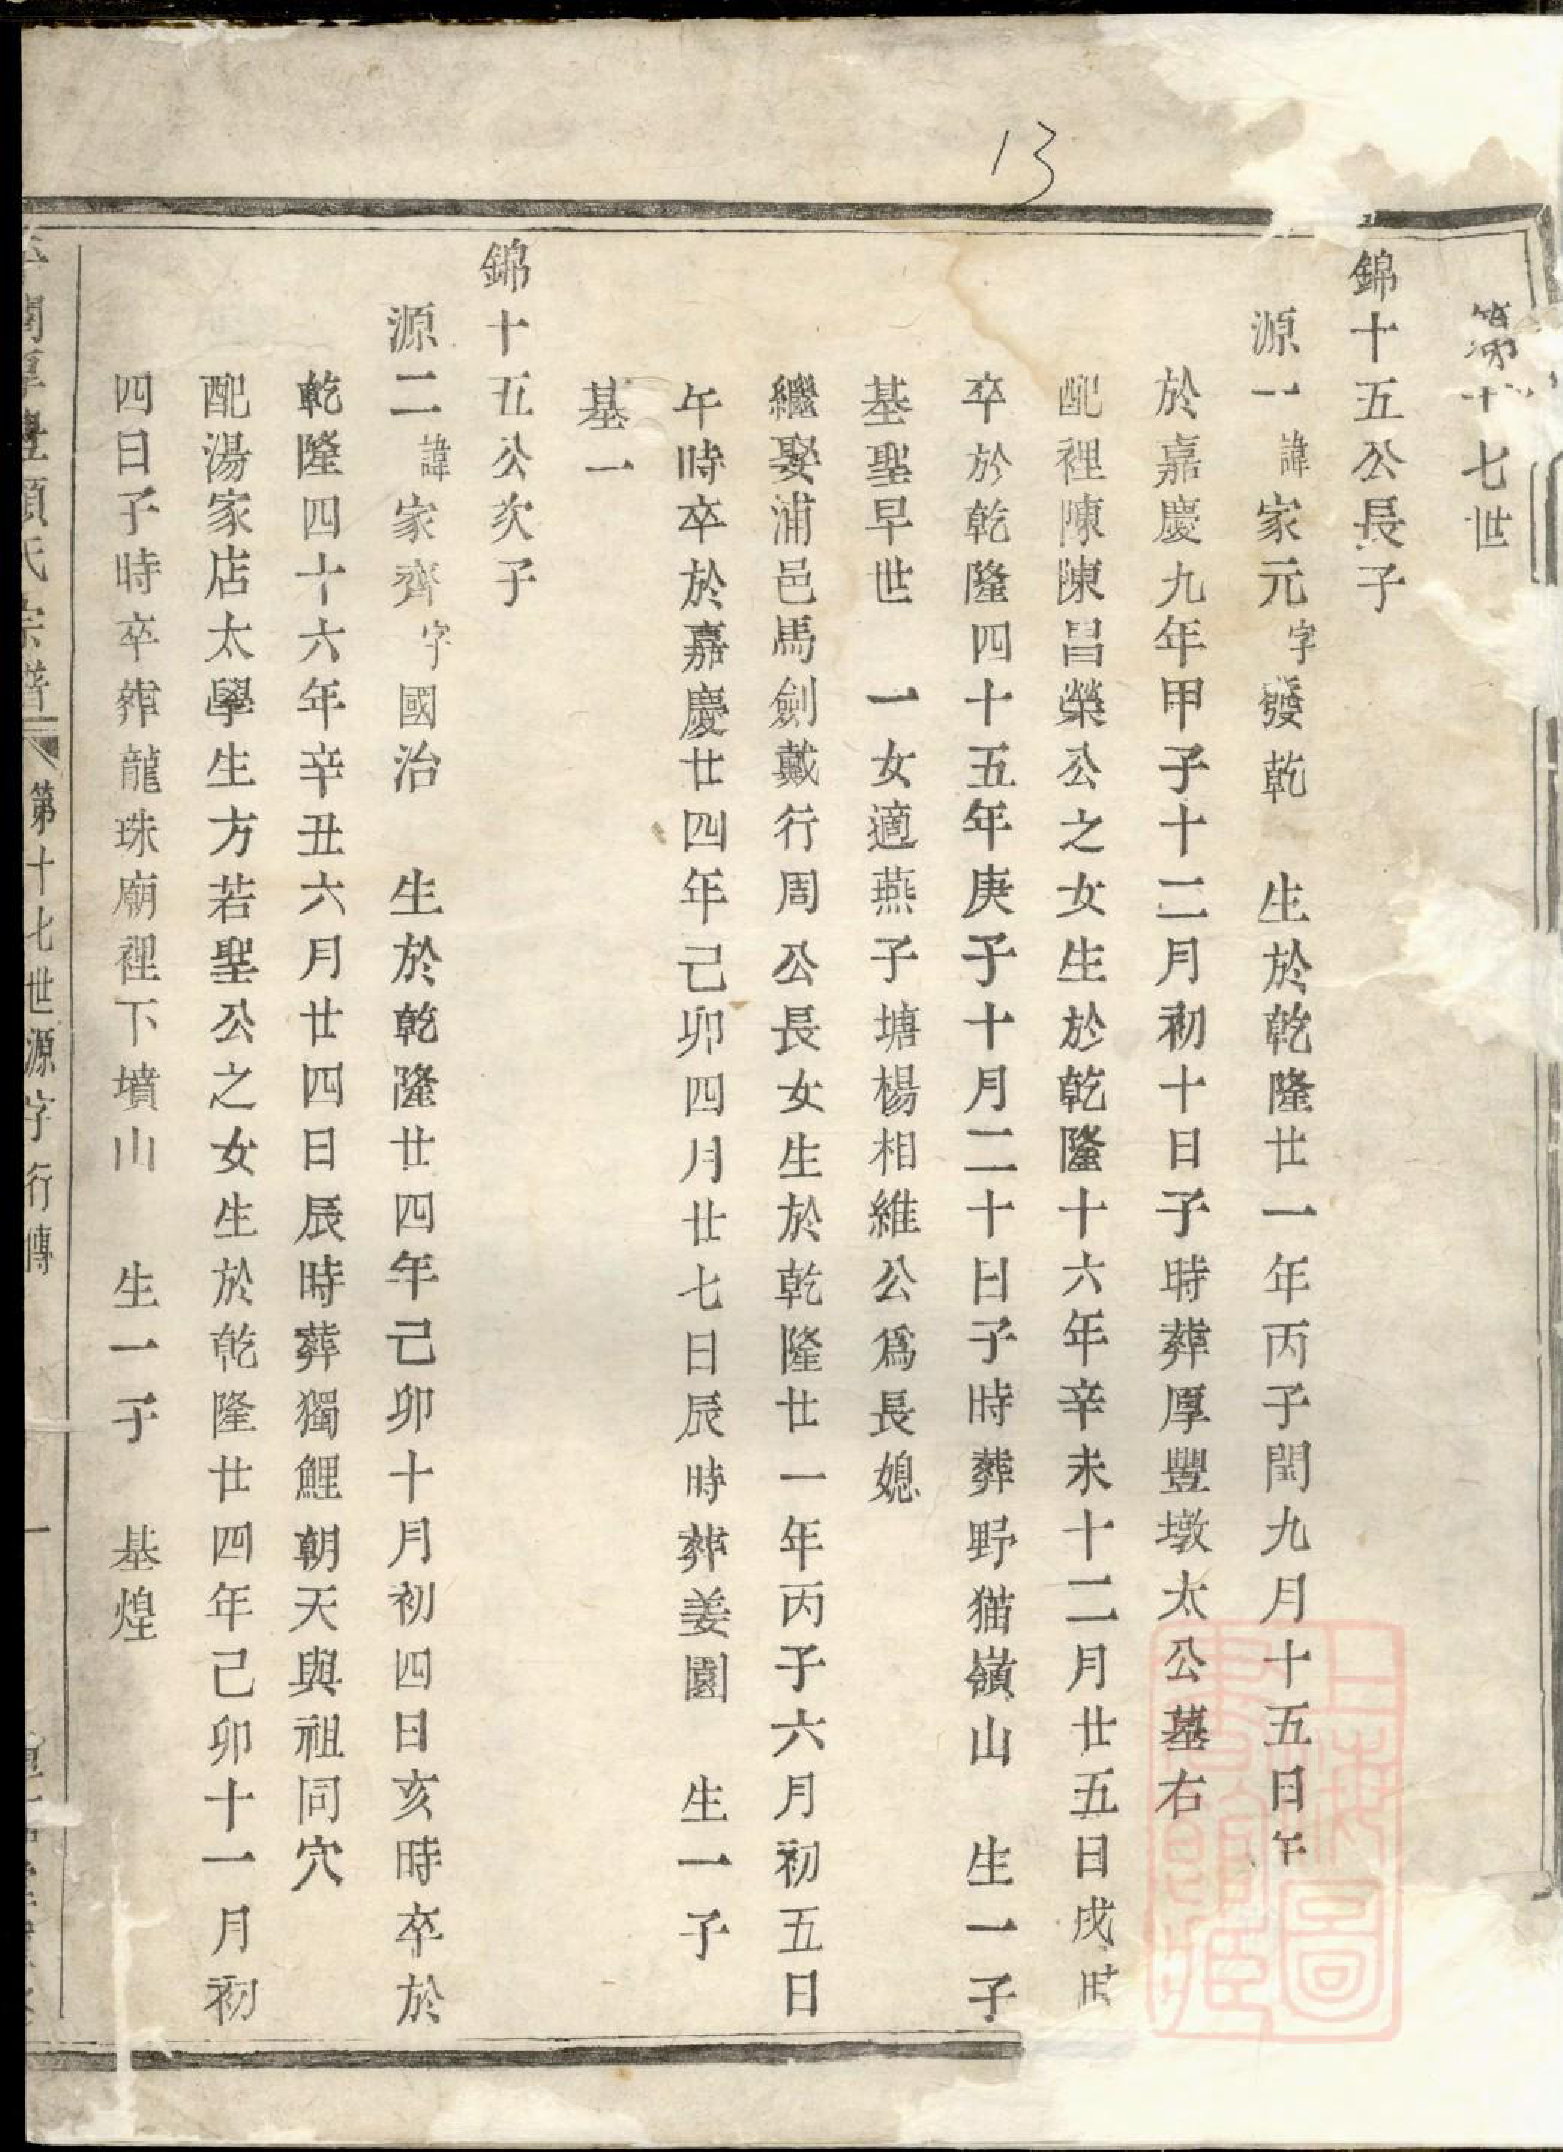 13
第十七世
錦十五公長子
源一諱家元字發乾 生於乾隆廿一年丙子閏九月十五日午
於嘉慶九年甲子十二月初十日子時葬厚豐墩太公墓右
配裡陳陳昌榮公之女生於乾隆十六年辛未十二月廿五日戌時
卒於乾隆四十五年庚子十月二十日子時葬野猫嶺山 生一子
基聖早世 一女適燕子塘楊相維公爲長媳
繼娶浦邑馬劍戴行周公長女生於乾隆廿一年丙子六月初五日
午時卒於嘉慶廿四年己卯四月廿七日辰時葬姜園 生一子
基一
錦十五公次子
源二諱家齊字國治 生於乾隆廿四年己卯十月初四日亥時卒於
乾隆四十六年辛丑六月廿四日辰時葬獨鯉朝天與祖同穴
配湯家店太學生方若聖公之女生於乾隆廿四年己卯十一月初
四日子時卒葬龍珠廟裡下墳山 生一子 基煌
氏宗譜 第十七世源字行傳 一
上海圖書館藏